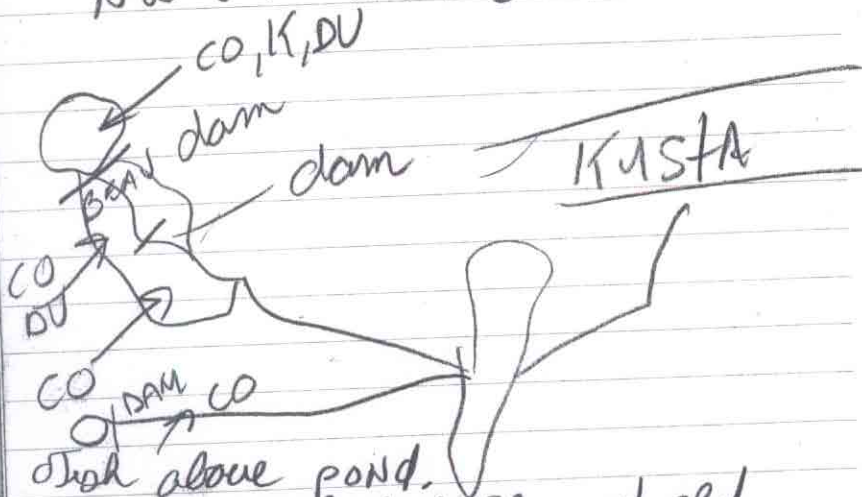 CO, K, DU
dam
dam
KUSTA
CO
DU
CO
DAM
CO
above pond.